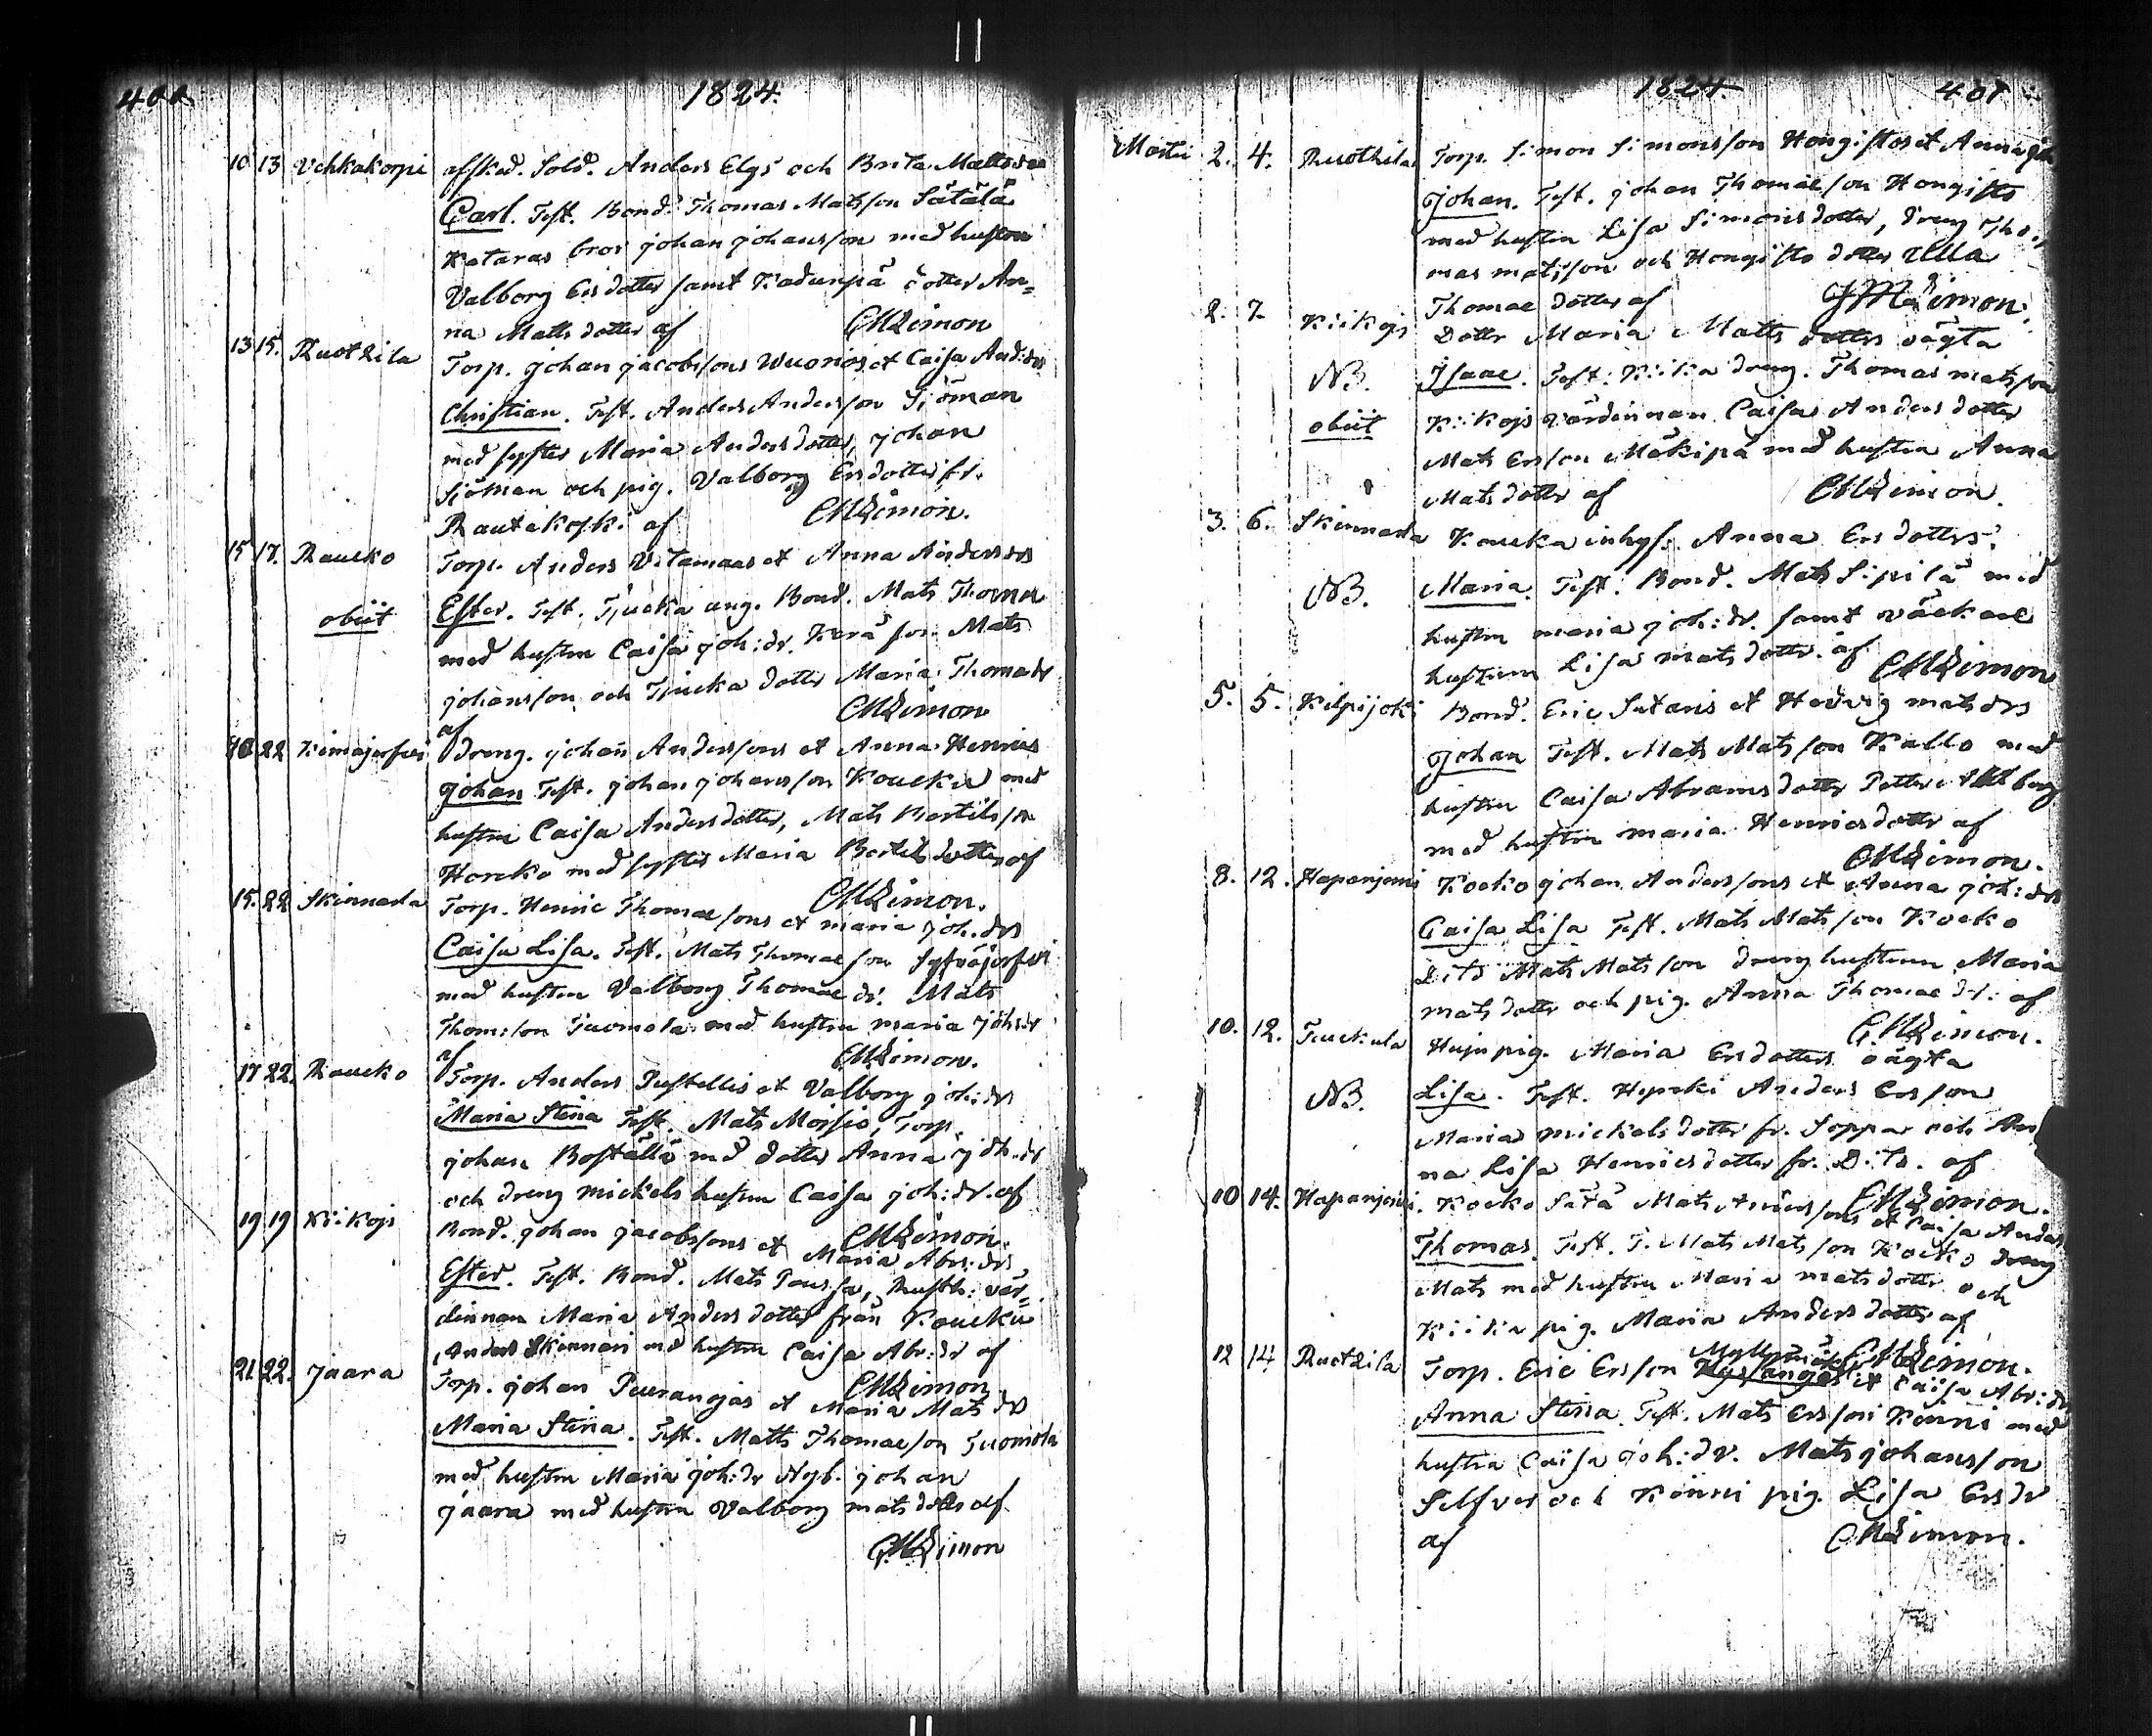 400
1824.
10 13 Vehkakorpi afsked. Sold. Anders Elgs och Brita Mattsdrs
Carl. Test. Bond. Thomas Matsson Sätälä
Kataras bror Johan Johansson med hustru
Valborg Ersdotter samt Kadunpä dotter An=
na Matts dotter af CM Limon
13 15. Ruotsila Torp. Johan Jacobssons Wuorios et Caisa And:drs
Christian. Test. Anders Andersson Sjöman
med syster Maria Anders dotter, Johan
Sjöman och pig. Valborg Ersdotter fr.
Rautakoski af CM Limon.
15 17. Raucko Torp. Anders Vitamaas et Anna Andersdrs
obiit Ester. Test. Tjucka ung. Bond. Mats Thomas
med hustru Caisa Joh:dr. Kerä son Mats
Johansson och Tjucka dotter Maria Thomadr
af CM Limon
22 Dreng. Johan Anderssons et Anna Henries
Johan Test. Johan Johansson Koucku med
hustru Caisa Andersdotter, Mats Bertilsson
Horcko med syster Maria Bertils dotter af
CM Limon.
15. 22 Skinnarla Torp. Henric Thomaesons et Maria Joh.drs
Caisa Lisa. Test. Mats Thomaeson
med hustru Valborg Thomae dr. Mats
Thomsson Tuomola med hustru Maria Joh:dr
af CM Limon.
17 22. Raucko Torp. Anders Pustellis et Valborg Joh:drs
Maria Stina Test. Mats Moisio, Torp.
Johan Boställä med dotter Anna Joh:dr
och dreng Mickels hustru Caisa Joh:dr. af
CM Limon.
19 19 Kiikojs Bond. Johan Jacobssons et Maria Abr:drs
Ester. Test. Bond. Mats Poussa, Rusth: vär=
dinnan Maria Anders dotter från Koucku
Anders Skinnari med hustru Caisa Abr:dr af
CM Limon
21. 22. Jaara Torp. Johan Puurangas et Maria Mats drs
Maria Stina. Test. Matts Thomaeson Tuomola
med hustru Maria Joh:dr Nyb. Johan
Jaara med hustru Valborg Mats dotter af
CM Limon
1824.
401
Martii 2. 4. Ruotsila Torp. Simon Simonsson Hongistos et Anna
Johan. Test. Johan Thomaeson Hongisto
med hustru Lisa Simons dotter, dreng Tho-
mas Matsson och Hongisto dotter Ulla
Thomae dotter af CM Limon.
2. 7. Kiikojs Dottr Maria Matts dotters oägta
NB. Isaac. Test: Kiika dreng. Thomas Matsson
obiit Kiikojs värdinnan Caisa Anders dotter
Mats Ersson Mäkipä med hustru Anna
Mats dottr af CM Limon.
3. 6. Skinnarla Koucka inhys: Anna Ers dotters.
NB. Maria. Test. Bond. Mats Sipilä med
hustru Maria Joh:dr. samt
hustrun Lisa Mats dotter. af CM Limon
5. 5. Kilpijoki Bond. Eric Sutaris et Hedvig Mats drs
Johan Test. Mats Matsson Kallo med
hustru Caisa Abrams dotter Petter Ahlberg
med hustru Maria Henries dottr af
CM Limon.
8. 12. Haapanjemi Kocko Johan Anderssons et Anna Joh:drs
Caisa Lisa Test. Mats Matsson Kocko
Dito Mats Matsson dreng hustrun Maria
Mats dotter och pig. Anna Thomae dr. af
CM Limon.
10. 12. Tuckula Huju pig. Maria Ers dotters oägta
NB. Lisa. Test. Anders Ersson
Maria Mickels dotter fr. Soppar och An
na Lisa Henries dotter fr. Dito. af
CM Limon.
10 14. Haapanjemi. Kocko Sätä Mats Anderssons et Caisa Anders
Thomas. Test. T. Mats Matsson Kocko dreng
Mats med hustru Maria Mats dotter och
Kiika pig. Maria Anders dotter af
CM Limon.
12 14 Ruotsila Torp. Eric Ersson et Caisa Abr:drs
Anna Stina. Test. Mats Ersson Könni med
hustru Caisa Joh:dr. Mats Johansson
Selfver och Könni pig. Lisa Ersdr
af CM Limon.